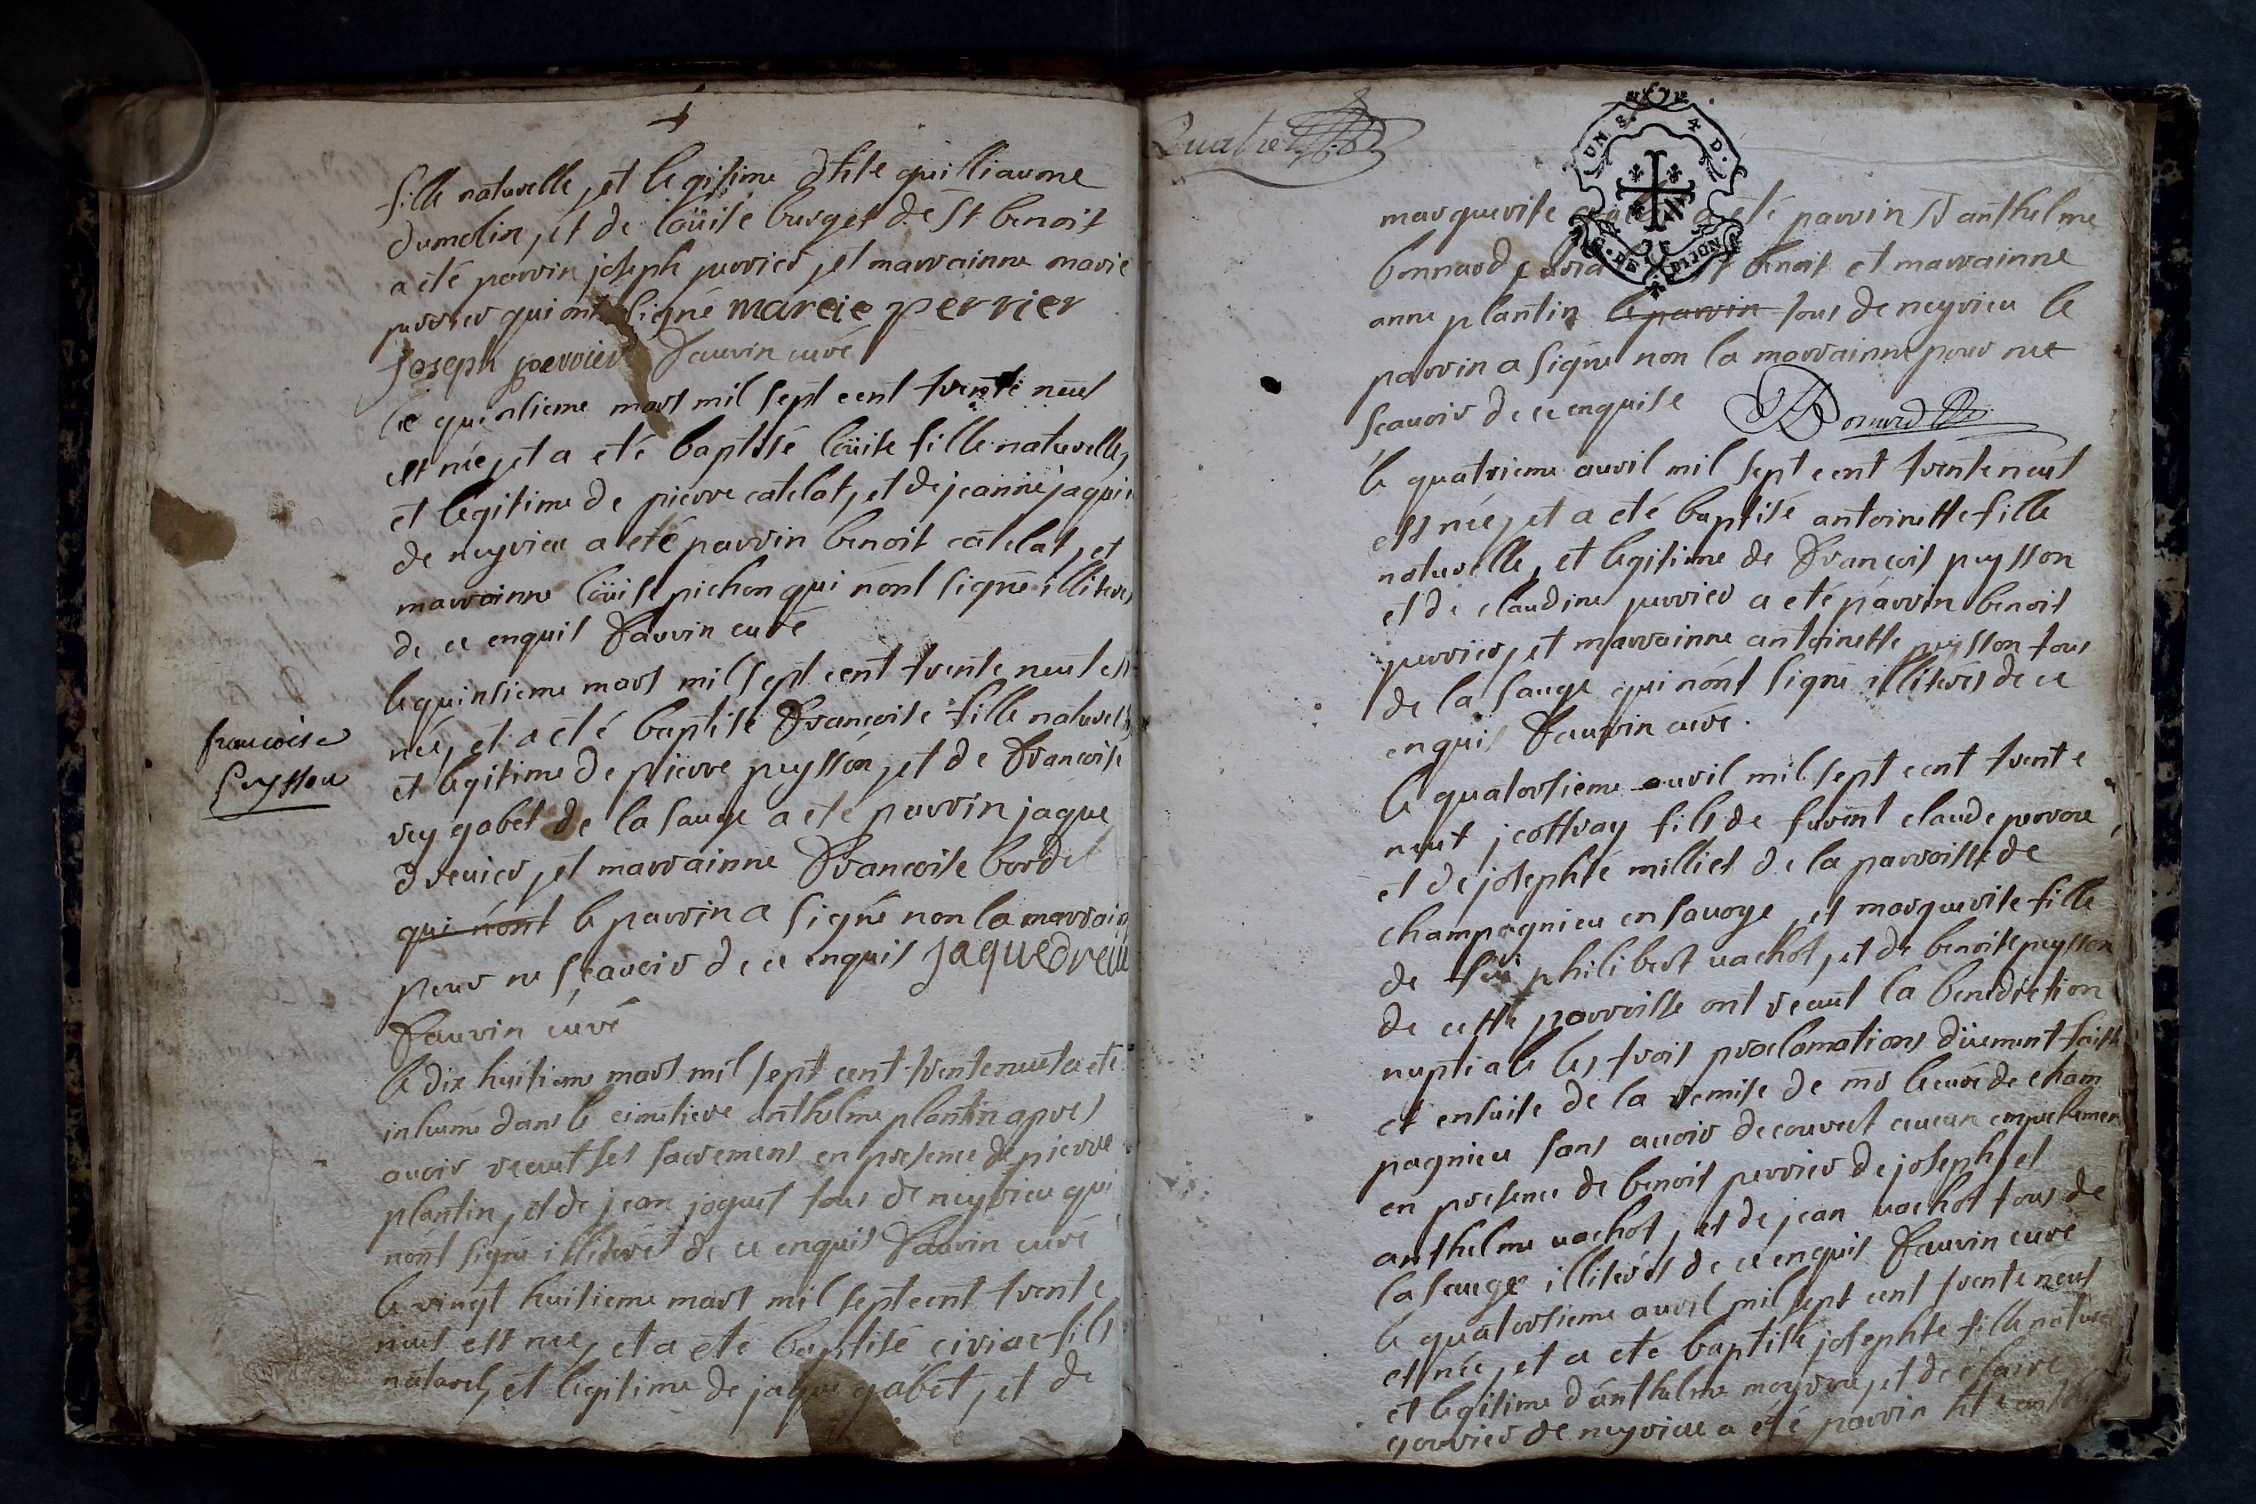 fille naturelle, et legitime d'hte guilliaume
dumolin, et de loüise burget de St benoit
a eté parrin joseph perrier, et marrainne marie
perrier qui ont signé mareie perrier
joseph perrier Fauvin curé
le quinsieme mars mil sept cent trente neuf
est née, et a eté baptisé loüise fille naturelle,
et legitime de pierre catelat, et de jeanne jaquin
de neyrieu a eté parrin benoit catelat, et
marrainne loüise pichon qui nont signé illiterés
de ce enquis Fauvin curé
le quinsieme mars mil sept cent trente neuf est
née, et a eté baptisé Francoise fille naturelle
et legitime de pierre puysson, et de Francoise
rey gabet de la sauge a eté parrin jaque
drevier, et marrainne Francoise bordel
qui nont le parrin a signé non la marrain
pour ne sçavoir de ce enquis jaque dreuie
Fauvin curé
francoise
puysson
le dix huitieme mars mil sept cent trente neuf a eté
inhumé dans le cimetiere anthelme plantin apres
avoir receut ses sacremens en presence de pierre
plantin, et de jean joquet tous de neyrieu qui
nont signé illiterés de ce enquis Fauvin curé
le vingt huitieme mars mil sept cent trente
neuf est née, et a eté baptisé civiac fils
naturel, et legitime de jaque gabet, et de
Quatre
UN S. 4 D.
G. DE DIJON
marguerite a eté parrin Sr anthelme
bonnard benoit et marrainne
anne plantin le parrin tous de neyrieu le
parrin a signé non la marrainne pour ne
scavoir de ce enquise Bonard
le quatrieme avril mil sept cent trente neuf
est née, et a eté baptisé antoinette fille
naturelle, et legitime de Francois puysson
et de claudine perrier a eté parrin benoit
perrier, et marrainne antoinette puysson tous
de la sauge qui nont signé illiterés de ce
enquis Fauvin curé.
le quatorsieme avril mil sept cent trente
neuf jeoffray fils de furent claude
et de josephte milliet de la parroisse de
champagnieu en savoye, et marguerite fille
de feu philibert vachot, et de benoite puysson
de cette parroisse ont receut la benediction
nuptiale les trois proclamations düement faitte
et ensuite de la remise de mr le curé de cham
pagnieu sans avoir decouvert aucun empechemen
en presence de benoit perrier de joseph, et
anthelme vachot, et de jean vachot tous de
la sauge illiterés de ce enquis Fauvin curé
le quatorsieme avril mil sept cent trente neuf
est née, et a eté baptisée josephte fille nature
et legitime d'anthelme et de claire
de neyrieu a eté parrin